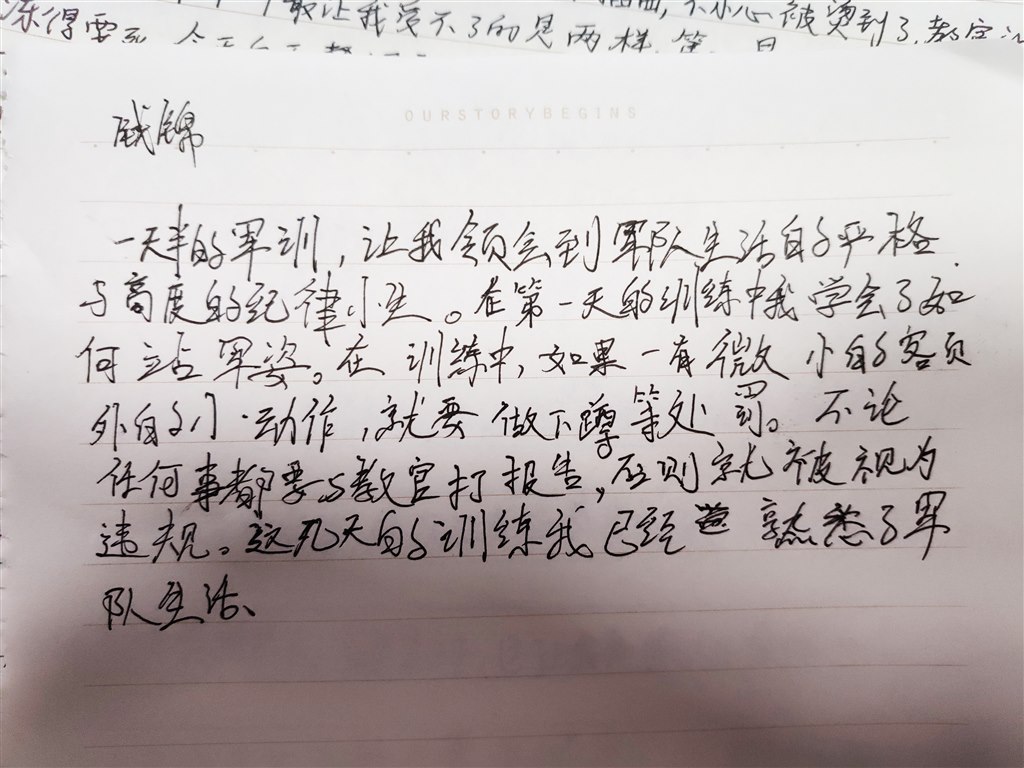 康得要死
最让我受不了的是两样
不小心被烫到了,教官
OURSTORYBEGINS
一天半的军训,让我领会到军队生活的严格
与高度的纪律小生。在第一天的训练中我学会了如
何站军姿。在训练中,如果一有微小的客页
外的小动作,就要做下蹲等处罚。不论
任何事都要与教官打报告,否则就被视为
违规。这几天的训练我已经熟悉了军
队生活、